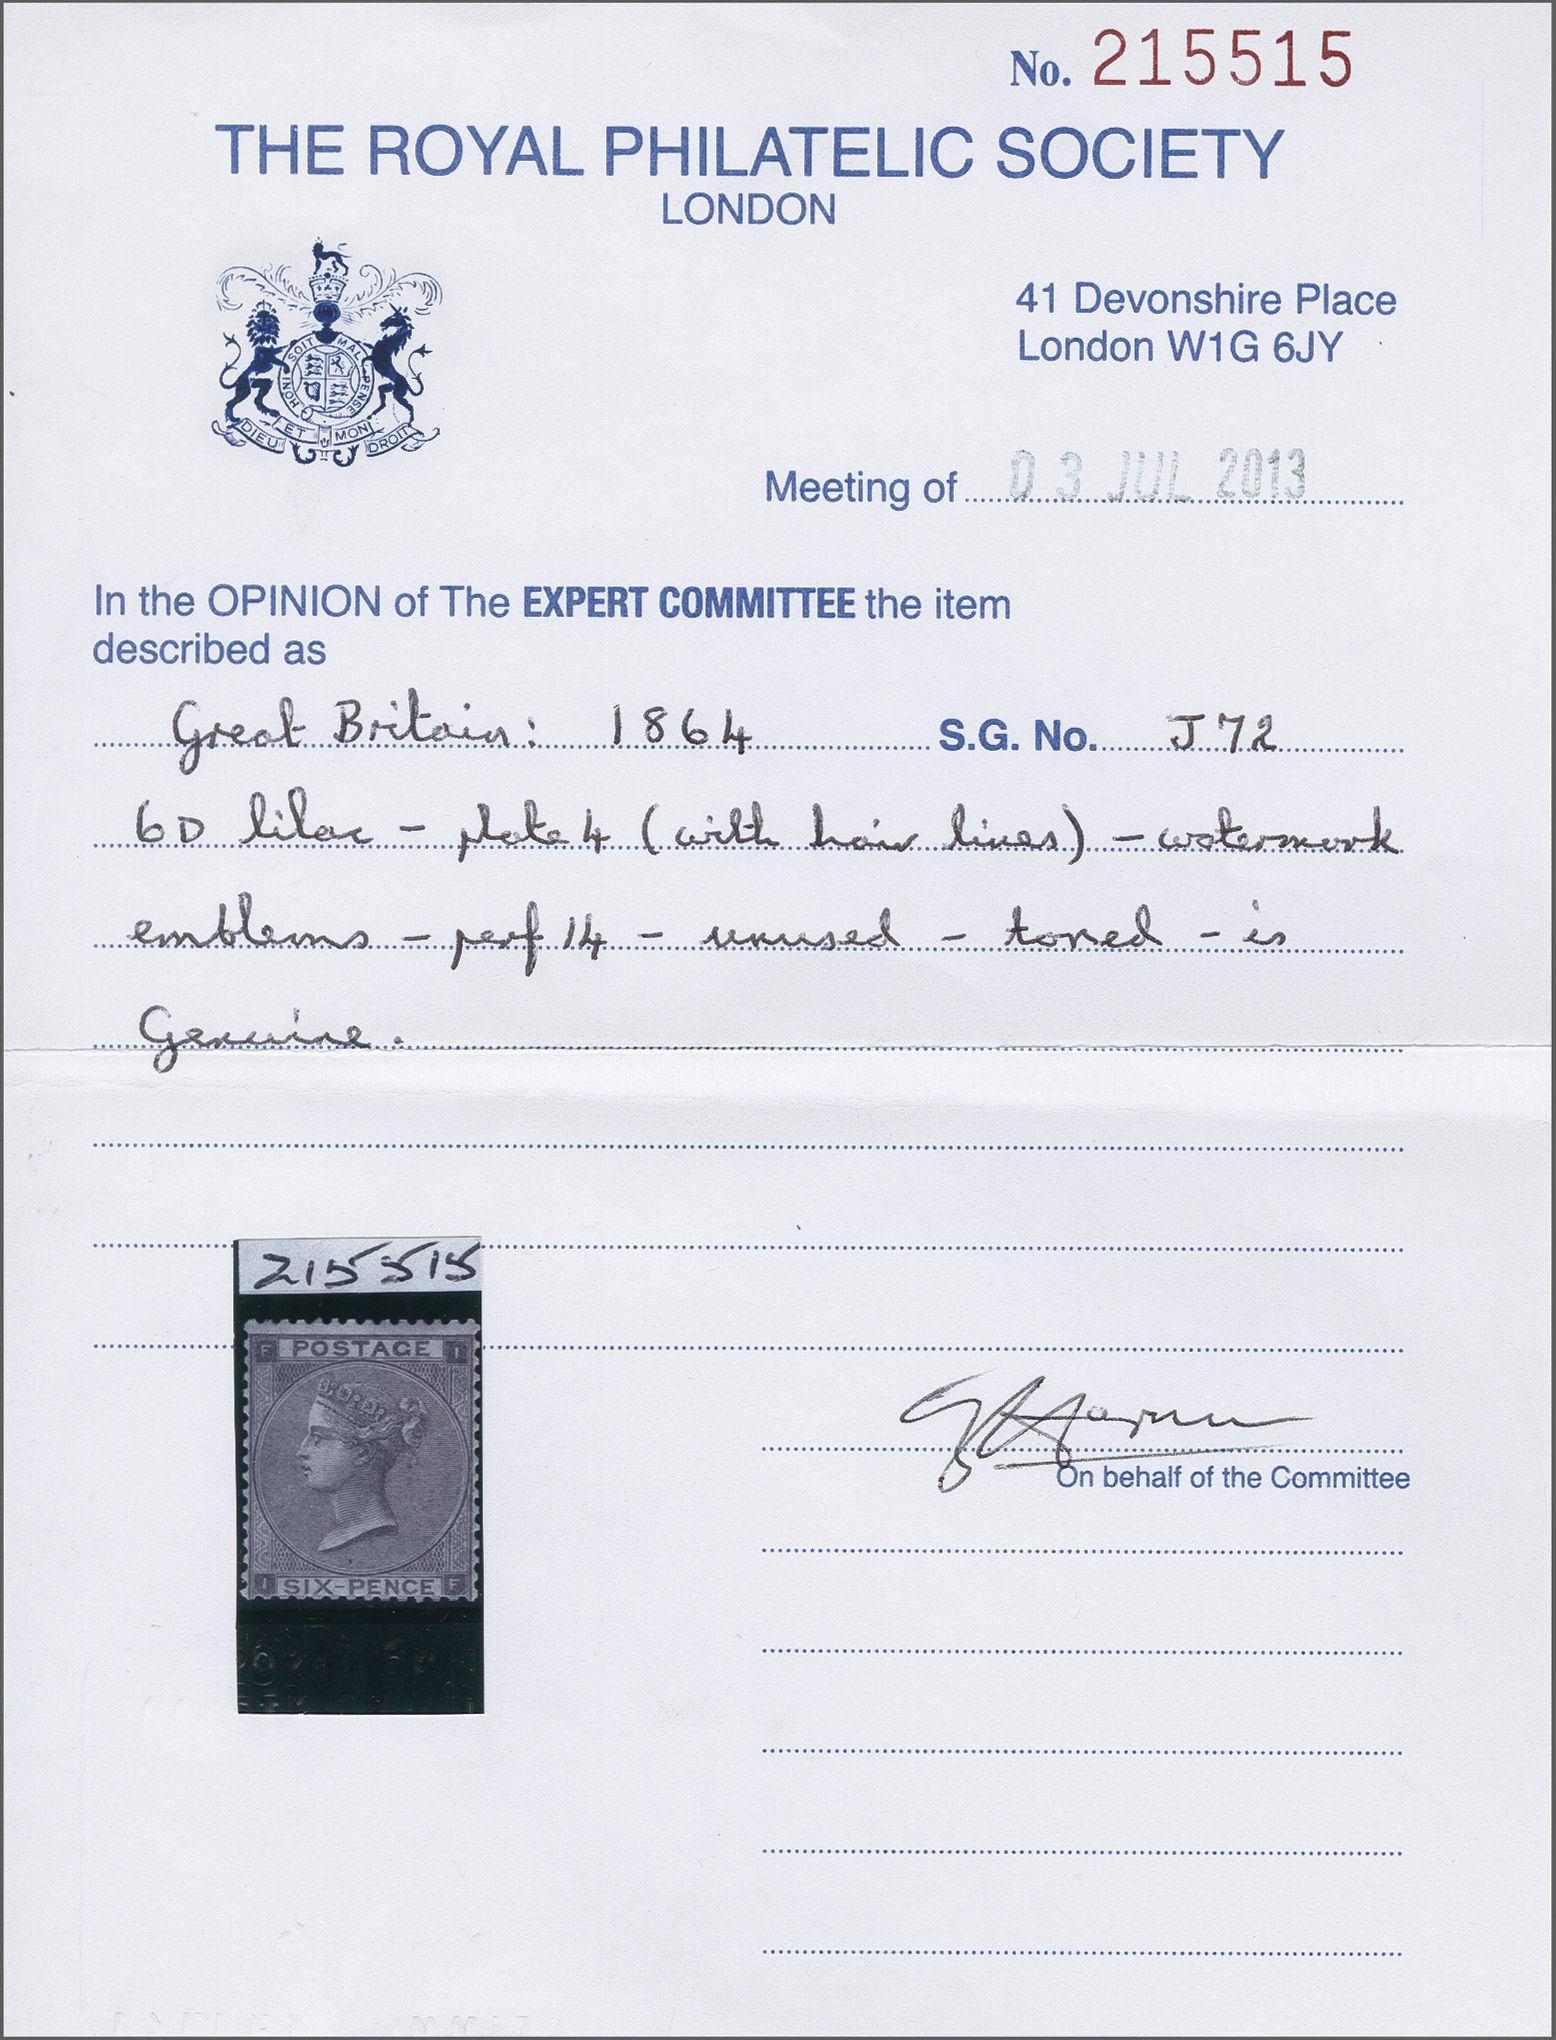 No. 215515
THE ROYAL PHILATELIC SOCIETY
LONDON
HONI SOIT MAL PENSE
DIEU ET MON DROIT
41 Devonshire Place
London W1G 6JY
Meeting of 03 JUL 2013
In the OPINION of The EXPERT COMMITTEE the item
described as
Great Britain: 1864 S.G. No. J72
6D lilac - plate 4 (with hair lines) - watermark
emblems - perf 14 - unused - toned - is
Genuine.
215515
F POSTAGE I
I SIX-PENCE F
On behalf of the Committee